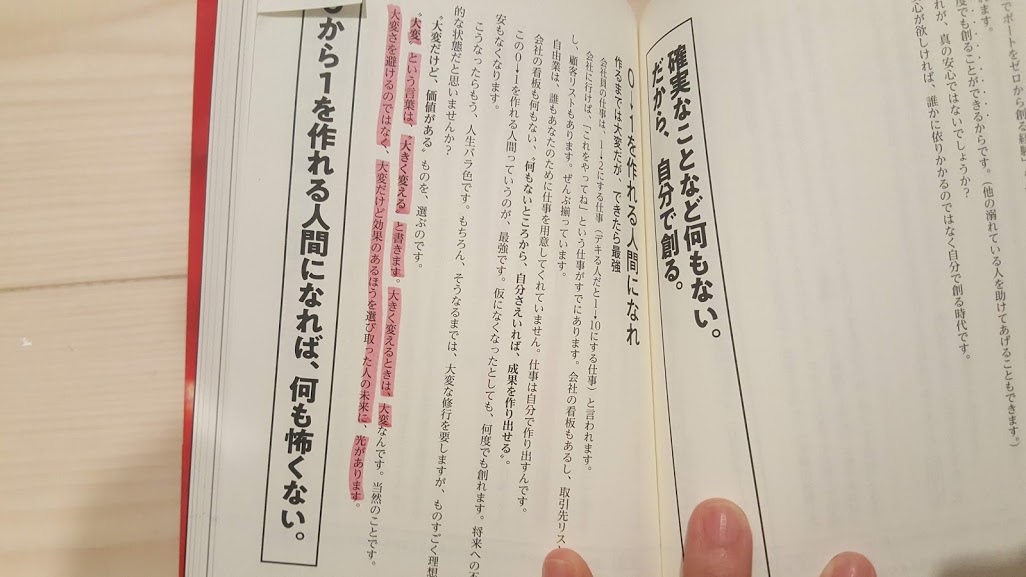 でボートをゼロから創る経験」
れます。
度でも創ることができるからです。(他の溺れている人を助けてあげることもできます。)
れが、真の安心ではないでしょうか?
心が欲しければ、誰かに依りかかるのではなく自分で創る時代です。
確実なことなど何もない。
だから、自分で創る。
0→1を作れる人間になれ
作るまでは大変だが、できたら最強
会社員の仕事は、1→2にする仕事(デキる人だと1→10にする仕事)と言われます。
会社に行けば、「これをやってね」という仕事がすでにあります。会社の看板もあるし、取引先リス
し、顧客リストもあります。ぜんぶ揃っています。
自由業は、誰もあなたのために仕事を用意してくれていません。仕事は自分で作り出すんです。
会社の看板も何もない、〝何もないところから、自分さえいれば、成果を作り出せる〟。
この0→1を作れる人間っていうのが、最強です。仮になくなったとしても、何度でも創れます。将来への不
安もなくなります。
こうなったらもう、人生バラ色です。もちろん、そうなるまでは、大変な修行を要しますが、ものすごく理想
的な状態だと思いませんか?
〝大変だけど、価値がある〟ものを、選ぶのです。
〝大変〟という言葉は、〝大きく変える〟と書きます。大きく変えるときは、大変なんです。当然のことです。
大変さを避けるのではなく、大変だけど効果のあるほうを選び取った人の未来に、光があります。
から1を作れる人間になれば、何も怖くない。